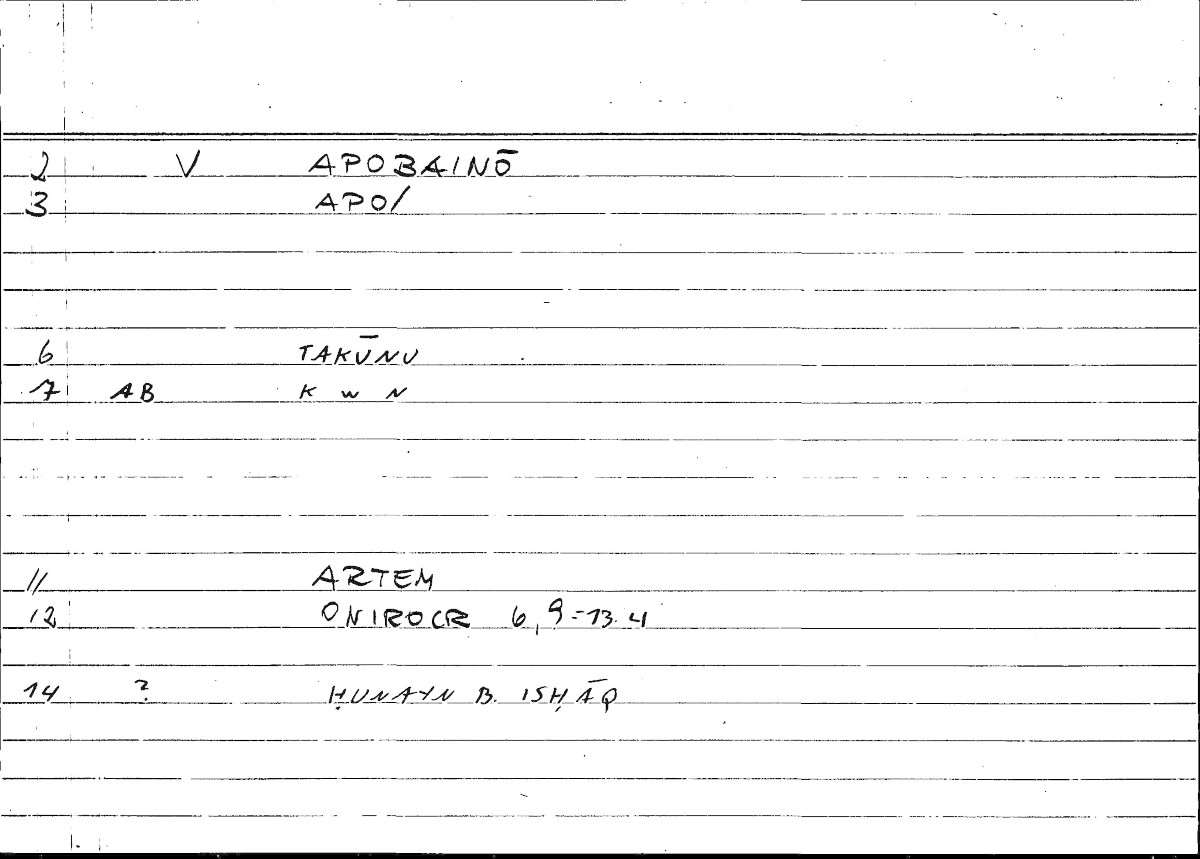 2 V APOBAINŌ
3 APO/
6 TAKŪNU
7 AB K W N
11 ARTEM
12 ONIROCR 6, 9 = 13.4
14 ? ḤUNAYN B. ISḤĀQ